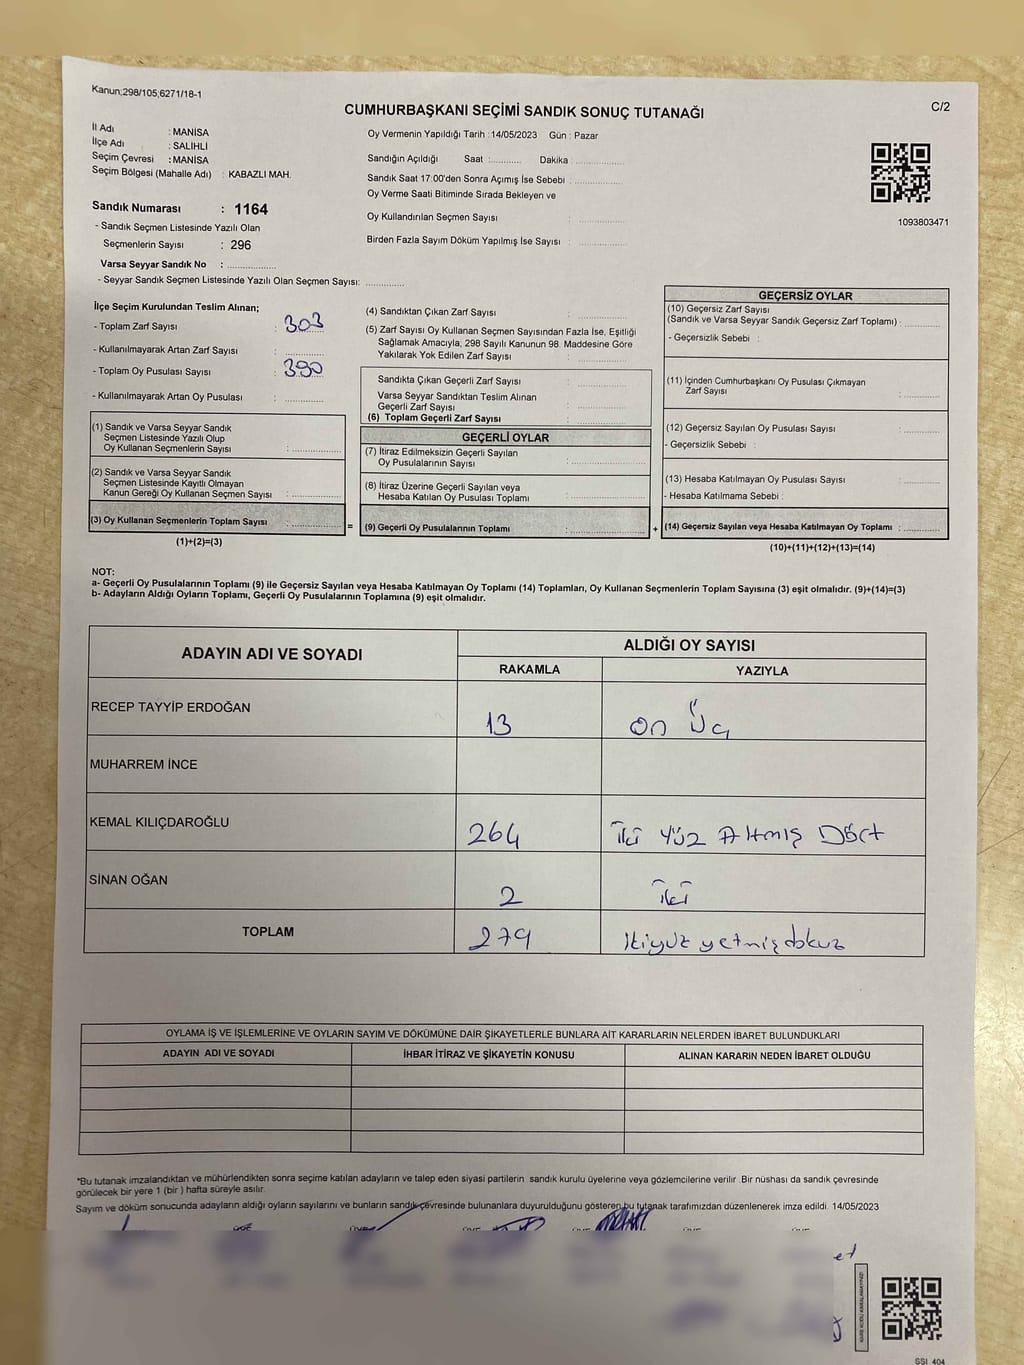 Kanun;298/105,6271/18-1
C/2
CUMHURBAŞKANI SEÇİMİ SANDIK SONUÇ TUTANAĞI
İl Adı : MANİSA
İlçe Adı : SALİHLİ
Seçim Çevresi : MANİSA
Seçim Bölgesi (Mahalle Adı) : KABAZLI MAH.
Sandık Numarası : 1164
- Sandık Seçmen Listesinde Yazılı Olan
Seçmenlerin Sayısı : 296
Varsa Seyyar Sandık No : ................
- Seyyar Sandık Seçmen Listesinde Yazılı Olan Seçmen Sayısı: ............
Oy Vermenin Yapıldığı Tarih : 14/05/2023 Gün : Pazar
Sandığın Açıldığı Saat :.......... Dakika :...............
Sandık Saat 17:00'den Sonra Açımış İse Sebebi : ...............
Oy Verme Saati Bitiminde Sırada Bekleyen ve
Oy Kullandırılan Seçmen Sayısı : ...............
Birden Fazla Sayım Döküm Yapılmış İse Sayısı : ...............
1093803471
İlçe Seçim Kurulundan Teslim Alınan;
- Toplam Zarf Sayısı : 303
- Kullanılmayarak Artan Zarf Sayısı : ............
- Toplam Oy Pusulası Sayısı : 390
- Kullanılmayarak Artan Oy Pusulası : ............
(1) Sandık ve Varsa Seyyar Sandık
Seçmen Listesinde Yazılı Olup
Oy Kullanan Seçmenlerin Sayısı : ...............
(2) Sandık ve Varsa Seyyar Sandık
Seçmen Listesinde Kayıtlı Olmayan
Kanun Gereği Oy Kullanan Seçmen Sayısı : ...............
(3) Oy Kullanan Seçmenlerin Toplam Sayısı : ............... =
(1)+(2)=(3)
(4) Sandıktan Çıkan Zarf Sayısı : ...............
(5) Zarf Sayısı Oy Kullanan Seçmen Sayısından Fazla İse, Eşitliği
Sağlamak Amacıyla, 298 Sayılı Kanunun 98. Maddesine Göre
Yakılarak Yok Edilen Zarf Sayısı : ...............
Sandıkta Çıkan Geçerli Zarf Sayısı : ...............
Varsa Seyyar Sandıktan Teslim Alınan
Geçerli Zarf Sayısı : ...............
(6) Toplam Geçerli Zarf Sayısı : ...............
GEÇERLİ OYLAR
(7) İtiraz Edilmeksizin Geçerli Sayılan
Oy Pusulalarının Sayısı : ...............
(8) İtiraz Üzerine Geçerli Sayılan veya
Hesaba Katılan Oy Pusulası Toplamı : ...............
(9) Geçerli Oy Pusulalarının Toplamı : ............... +
GEÇERSİZ OYLAR
(10) Geçersiz Zarf Sayısı
(Sandık ve Varsa Seyyar Sandık Geçersiz Zarf Toplamı) : ............
- Geçersizlik Sebebi :
(11) İçinden Cumhurbaşkanı Oy Pusulası Çıkmayan
Zarf Sayısı : ............
(12) Geçersiz Sayılan Oy Pusulası Sayısı : ............
- Geçersizlik Sebebi :
(13) Hesaba Katılmayan Oy Pusulası Sayısı : ............
- Hesaba Katılmama Sebebi :
(14) Geçersiz Sayılan veya Hesaba Katılmayan Oy Toplamı : ............
(10)+(11)+(12)+(13)=(14)
NOT:
a- Geçerli Oy Pusulalarının Toplamı (9) ile Geçersiz Sayılan veya Hesaba Katılmayan Oy Toplamı (14) Toplamları, Oy Kullanan Seçmenlerin Toplam Sayısına (3) eşit olmalıdır. (9)+(14)=(3)
b- Adayların Aldığı Oyların Toplamı, Geçerli Oy Pusulalarının Toplamına (9) eşit olmalıdır.
ADAYIN ADI VE SOYADI
ALDIĞI OY SAYISI
RAKAMLA YAZIYLA
RECEP TAYYİP ERDOĞAN 13 on Üç
MUHARREM İNCE
KEMAL KILIÇDAROĞLU 264 iki YÜZ Altmış Dört
SİNAN OĞAN 2 iki
TOPLAM 279 ikiyüz yetmiş dokuz
OYLAMA İŞ VE İŞLEMLERİNE VE OYLARIN SAYIM VE DÖKÜMÜNE DAİR ŞİKAYETLERLE BUNLARA AİT KARARLARIN NELERDEN İBARET BULUNDUKLARI
ADAYIN ADI VE SOYADI İHBAR İTİRAZ VE ŞİKAYETİN KONUSU ALINAN KARARIN NEDEN İBARET OLDUĞU
*Bu tutanak imzalandıktan ve mühürlendikten sonra seçime katılan adayların ve talep eden siyasi partilerin sandık kurulu üyelerine veya gözlemcilerine verilir .Bir nüshası da sandık çevresinde
görülecek bir yere 1 (bir ) hafta süreyle asılır.
Sayım ve döküm sonucunda adayların aldığı oyların sayılarını ve bunların sandık çevresinde bulunanlara duyurulduğunu gösteren bu tutanak tarafımızdan düzenlenerek imza edildi. 14/05/2023
KARE KODU KARALAMAYINIZ!
SSI_404